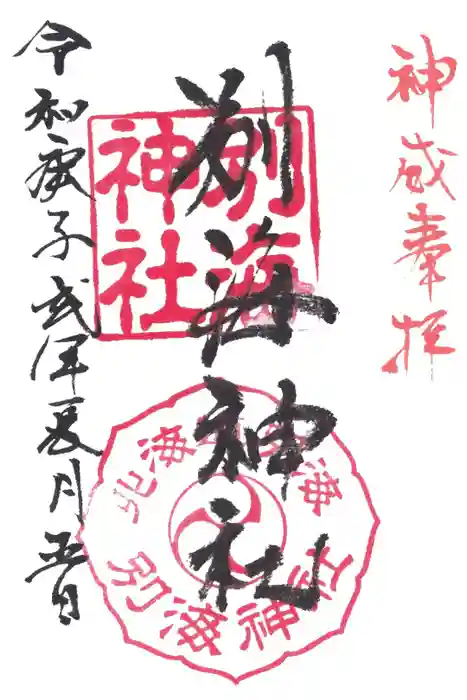 神威奉拝
別海神社
別海神社
北海
別海
神社
令和庚子弐年夏月五日